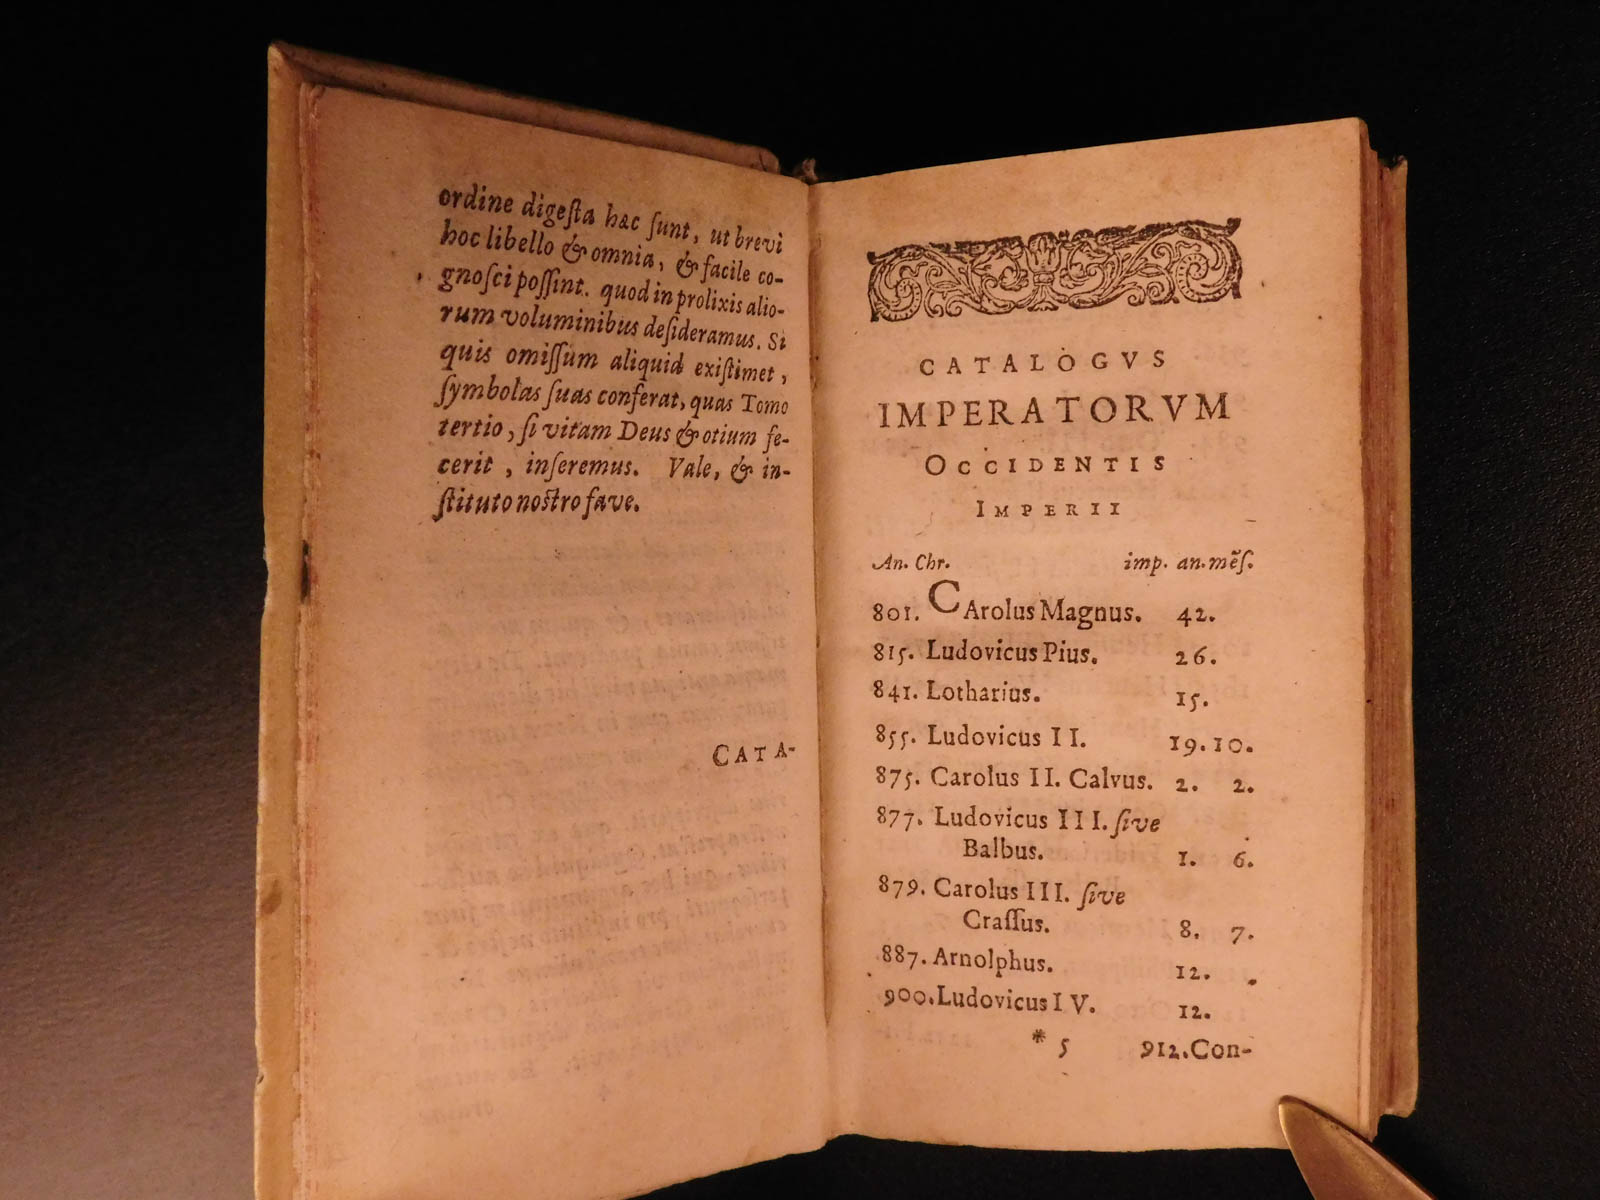 ordine digeſta hæc ſunt, ut brevi
hoc libello & omnia, & facile co-
gnoſci poſſint. quod in prolixis alio-
rum voluminibus deſideramus. Si
quis omiſſum aliquid exiſtimet,
ſymbolas ſuas conferat, quas Tomo
tertio, ſi vitam Deus & otium fe-
cerit, inſeremus. Vale, & in-
ſtituto noſtro fave.
CATA-
CATALOGVS
IMPERATORVM
OCCIDENTIS
IMPERII
An. Chr. imp. an. mẽſ.
801. CArolus Magnus. 42.
815. Ludovicus Pius. 26.
841. Lotharius. 15.
855. Ludovicus II. 19. 10.
875. Carolus II. Calvus. 2. 2.
877. Ludovicus III. ſive
Balbus. 1. 6.
879. Carolus III. ſive
Craſſus. 8. 7.
887. Arnolphus. 12. .
900. Ludovicus IV. 12.
* 5 912. Con-